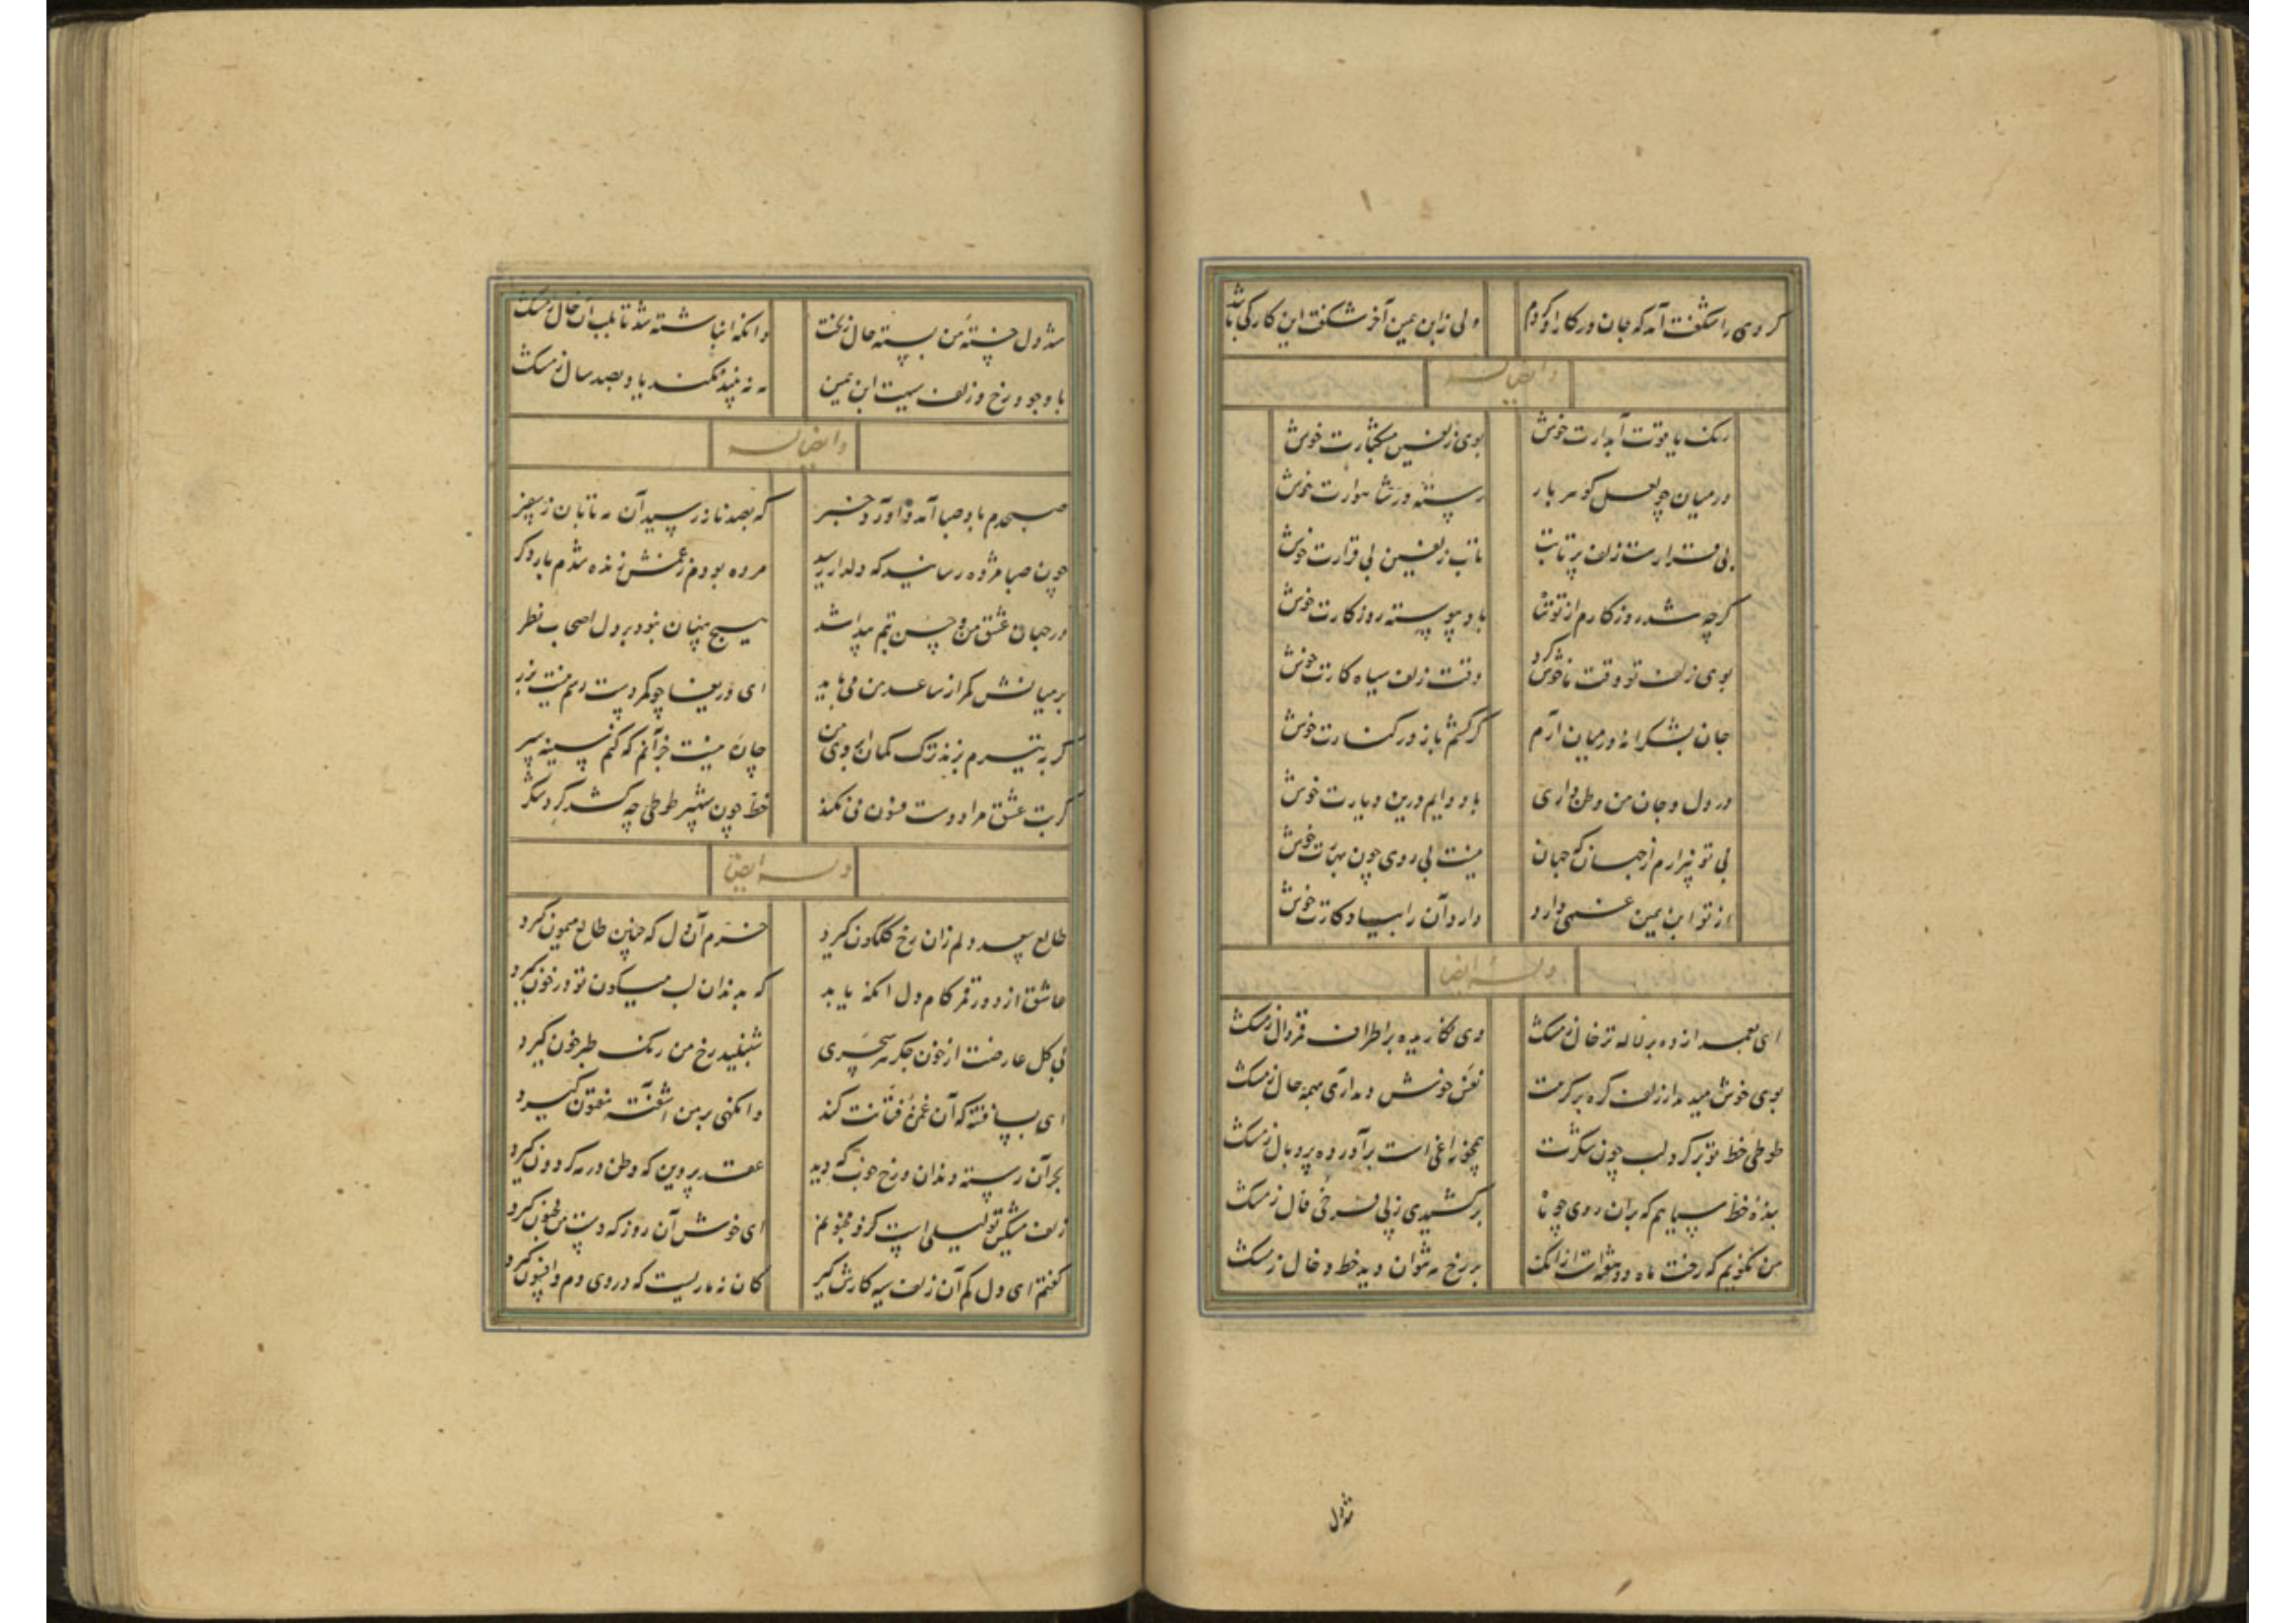 کروی را شکفت آمد که جان در کار او کردم ولی زابن یمین آخر شکفت این کار کی باشد
وایضا له
رنک یاقوت آبدارت خوش بوی زلفین مشکبارت خوش
در میان دو لعل کوهر بار رسته در شاهوارت خوش
بی قرارست زلف پر تابت تاب زلفین بی قرارت خوش
کرچه شد روزکارم از تو تباه باد پیوسته روزکارت خوش
بوی زلف تو وقت ما خوش کرد وقت زلف سیاه کارت خوش
جان بشکرانه در میان آرم کر کشم باز در کنارت خوش
در دل و جان من وطن داری باد دایم درین دیارت خوش
بی تو بیزارم از جهان که جهان نیست بی روی چون بهارت خوش
از تو ابن یمین غمی دارد دارد آن را بیادکارت خوش
وله ایضا
ای بعمدا زده بر لاله تر خال ز مشک وی نکاریده بر اطراف قمر دال ز مشک
بوی خوش میدمد از زلف کره بر کرهت نفس خوش دمد آری همه حال ز مشک
طوطی خط تو بر کرد لب چون شکرت همچو زاغی است برآورده پر و بال ز مشک
بنده خط سیاهم که بر آن روی چو ماه برکشیدی ز پی فرخی فال ز مشک
من نکویم که رخت ماه دو هفته است از آنک بر رخ مه نتوان دید خط و خال ز مشک
شد دل
شد دل خسته من بسته خال زنخت وانکه انباشته شد تا بلب آن خال ز مشک
با وجود رخ و زلف سیهت ابن یمین مه نبیند نکند یاد بصد سال ز مشک
وایضا له
صبحدم باد صبا آمد و آورد خبر که بصد ناز رسید آن مه تابان ز سفر
چون صبا مژده رسانید که دلدار رسید مرده بودم ز غمش زنده شدم بار دکر
در جهان عشق من و حسن بتم پیدا شد هیچ پنهان نبود بر دل اصحاب نظر
بر میانش کمر از ساعد من می باید ای دریغا چو کمر دست رسم نیست بزر
کر به تیرم بزند ترک کمان ابروی من چاره نیست جز آنم که کنم سینه سپر
کر بت عشق مرا دوست فسون می نکند خط چون شهپر طوطی چه کشد کرد شکر
وله ایضا
طالع سعد دلم زان رخ کلکون کیرد خرم آن دل که چنین طالع میمون کیرد
عاشق از دور قمر کام دل آنکه یابد که بدندان لب میکون تو در خون کیرد
بی کل عارضت از خون جکر هر سحری شنبلید رخ من رنک طبرخون کیرد
ای بسا فتنه که آن غمزه فتانت کند وانکهی بر من آشفته مفتون کیرد
بجز آن رسته دندان و رخ خوب که دید عقد پروین که وطن در مه کردون کیرد
زلف مشکین تو لیلی است کزو مجنونم ای خوش آن روز که دست من مجنون کیرد
کفتم ای دل کم آن زلف سیه کارش کیر کان نه ماریست که در وی دم و افسون کیرد